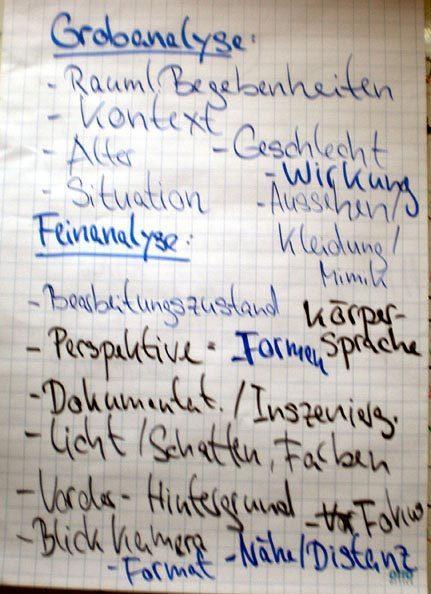 Grobanalyse:
- Raum/Begebenheiten
- Kontext
- Alter - Geschlecht
- Wirkung
- Situation - Aussehen/
Kleidung/
Mimik
Feinanalyse:
- Bearbeitungszustand Körper-
- Perspektive - Formen Sprache
- Dokumentat./Inszenierg.
- Licht/Schatten, Farben
- Vorder- Hintergrund - Fokus
- Blick Kamera
- Format - Nähe/Distanz